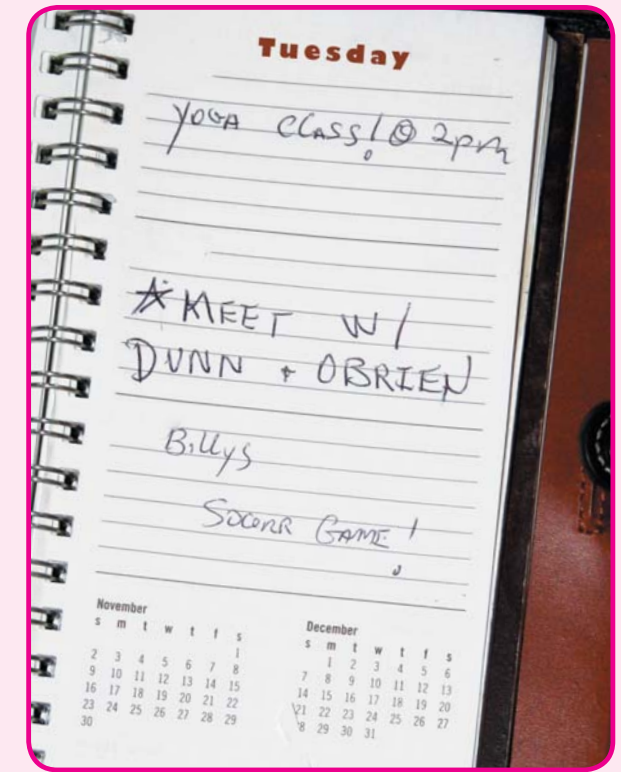 Tuesday
YOGA CLASS! @ 2pm
☆ MEET W/
DUNN + OBRIEN
Billys
SOCERR GAME!
November
s m t w t f s
1
2 3 4 5 6 7 8
9 10 11 12 13 14 15
16 17 18 19 20 21 22
23 24 25 26 27 28 29
30
December
s m t w t f s
1 2 3 4 5 6
7 8 9 10 11 12 13
14 15 16 17 18 19 20
21 22 23 24 25 26 27
28 29 30 31